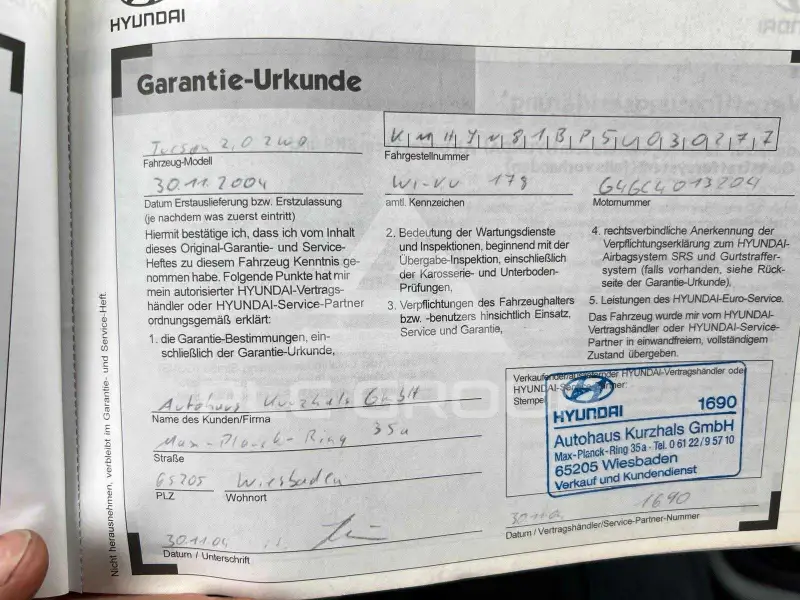 HYUNDAI
Garantie-Urkunde
Tucson 2,0 2WD
Fahrzeug-Modell
KMHJN81BP5U030277
Fahrgestellnummer
30.11.2004
Datum Erstauslieferung bzw. Erstzulassung
(je nachdem was zuerst eintritt)
WI-VU 178
amtl. Kennzeichen
G4GC4013204
Motornummer
Hiermit bestätige ich, dass ich vom Inhalt
dieses Original-Garantie- und Service-
Heftes zu diesem Fahrzeug Kenntnis ge-
nommen habe. Folgende Punkte hat mir
mein autorisierter HYUNDAI-Vertrags-
händler oder HYUNDAI-Service-Partner
ordnungsgemäß erklärt:
1. die Garantie-Bestimmungen, ein-
schließlich der Garantie-Urkunde,
2. Bedeutung der Wartungsdienste
und Inspektionen, beginnend mit der
Übergabe-Inspektion, einschließlich
der Karosserie- und Unterboden-
Prüfungen,
3. Verpflichtungen des Fahrzeughalters
bzw. -benutzers hinsichtlich Einsatz,
Service und Garantie,
4. rechtsverbindliche Anerkennung der
Verpflichtungserklärung zum HYUNDAI-
Airbagsystem SRS und Gurtstraffer-
system (falls vorhanden, siehe Rück-
seite der Garantie-Urkunde),
5. Leistungen des HYUNDAI-Euro-Service.
Das Fahrzeug wurde mir vom HYUNDAI-
Vertragshändler oder HYUNDAI-Service-
Partner in einwandfreiem, vollständigem
Zustand übergeben.
Autohaus Kurzhals GmbH
Name des Kunden/Firma
Max-Planck-Ring 35a
Straße
65205 Wiesbaden
PLZ Wohnort
30.11.04
Datum / Unterschrift
HYUNDAI-Vertragshändler oder
Stempel
HYUNDAI 1690
Autohaus Kurzhals GmbH
Max-Planck-Ring 35a · Tel. 0 61 22 / 9 57 10
65205 Wiesbaden
Verkauf und Kundendienst
1690
Datum / Vertragshändler/Service-Partner-Nummer
Nicht herausnehmen, verbleibt im Garantie- und Service-Heft.